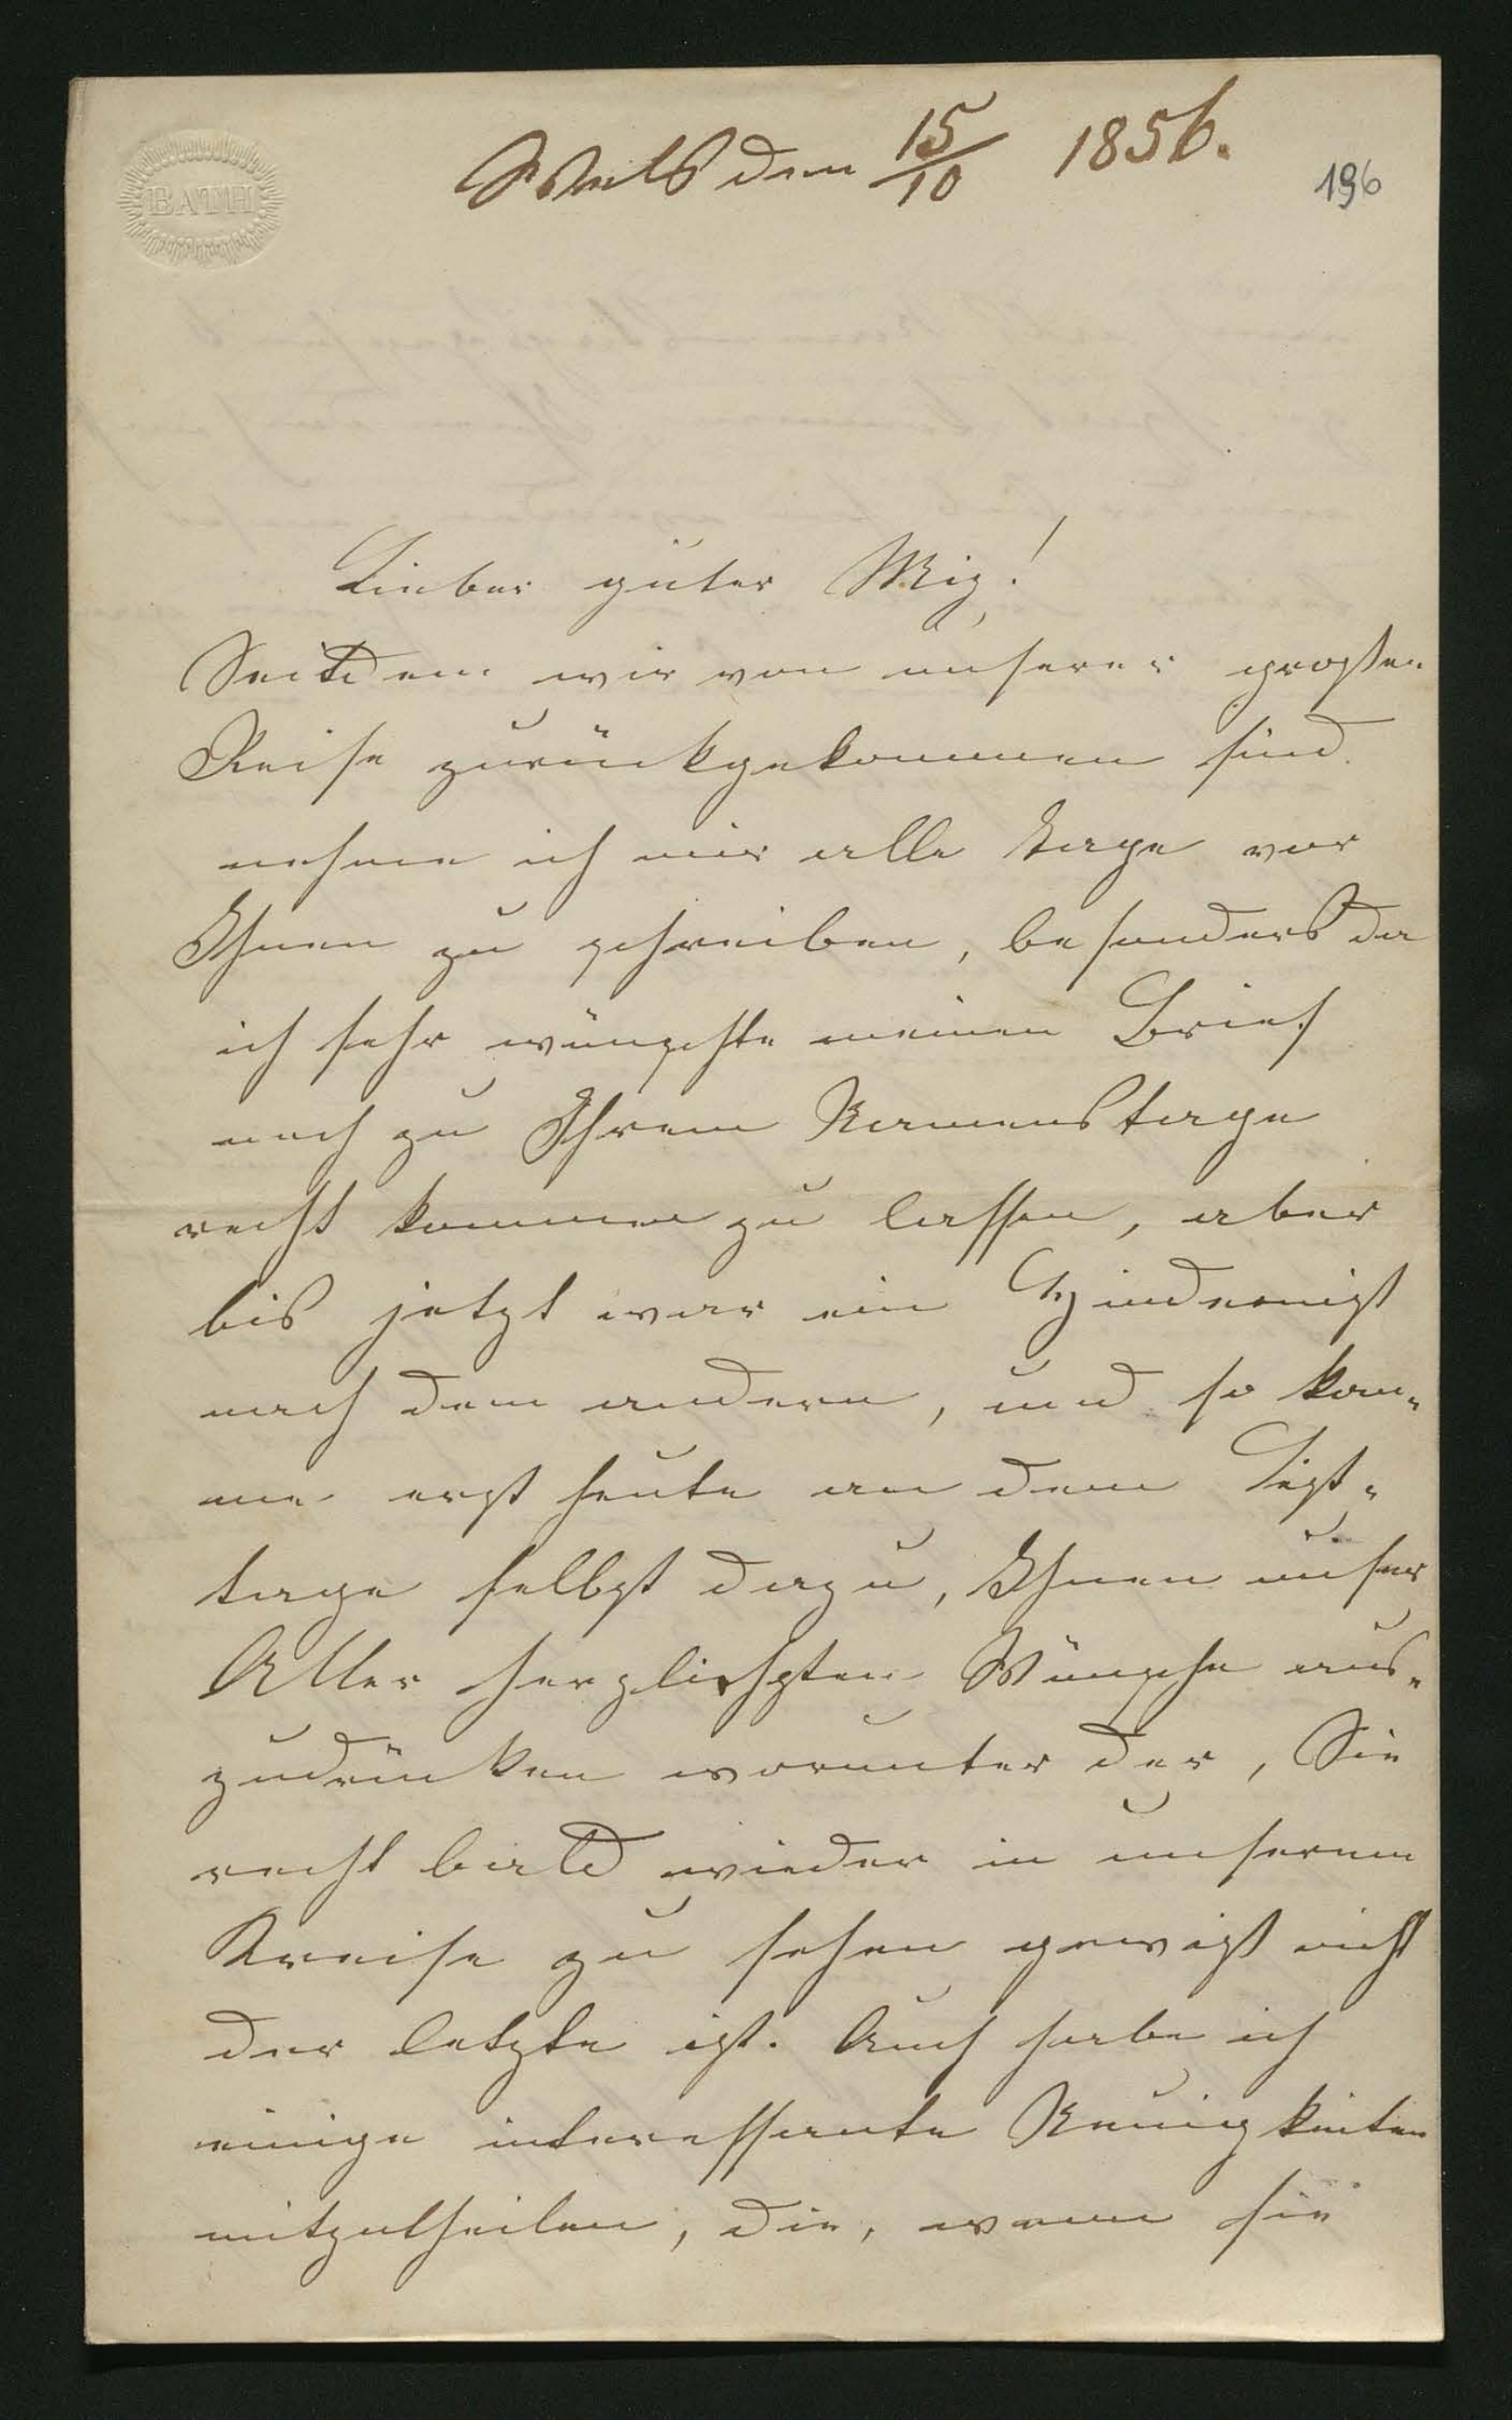 BATH
Wels den 15/10 1856.
196
Lieber guter Mig!
Seitdem wir von unserer großen
Reise zurückgekommen sind
nehme ich mir alle Tage vor
Ihnen zu schreiben, besonders da
ich sehr wünschte meinen Brief
noch zu Ihrem Namenstage
recht kommen zu lassen, aber
bis jetzt war ein Hinderniß
nach dem andern, und so kom-
me erst heute an dem Fest-
tage selbst dazu, Ihnen unser
Aller herzlichsten Wünsche aus-
zudrücken worunter der, Sie
recht bald wieder in unserem
Kreise zu sehen gewiß nicht
der letzte ist. Auch habe ich
einige interessante Neuigkeiten
mitzutheilen, die, wenn sie